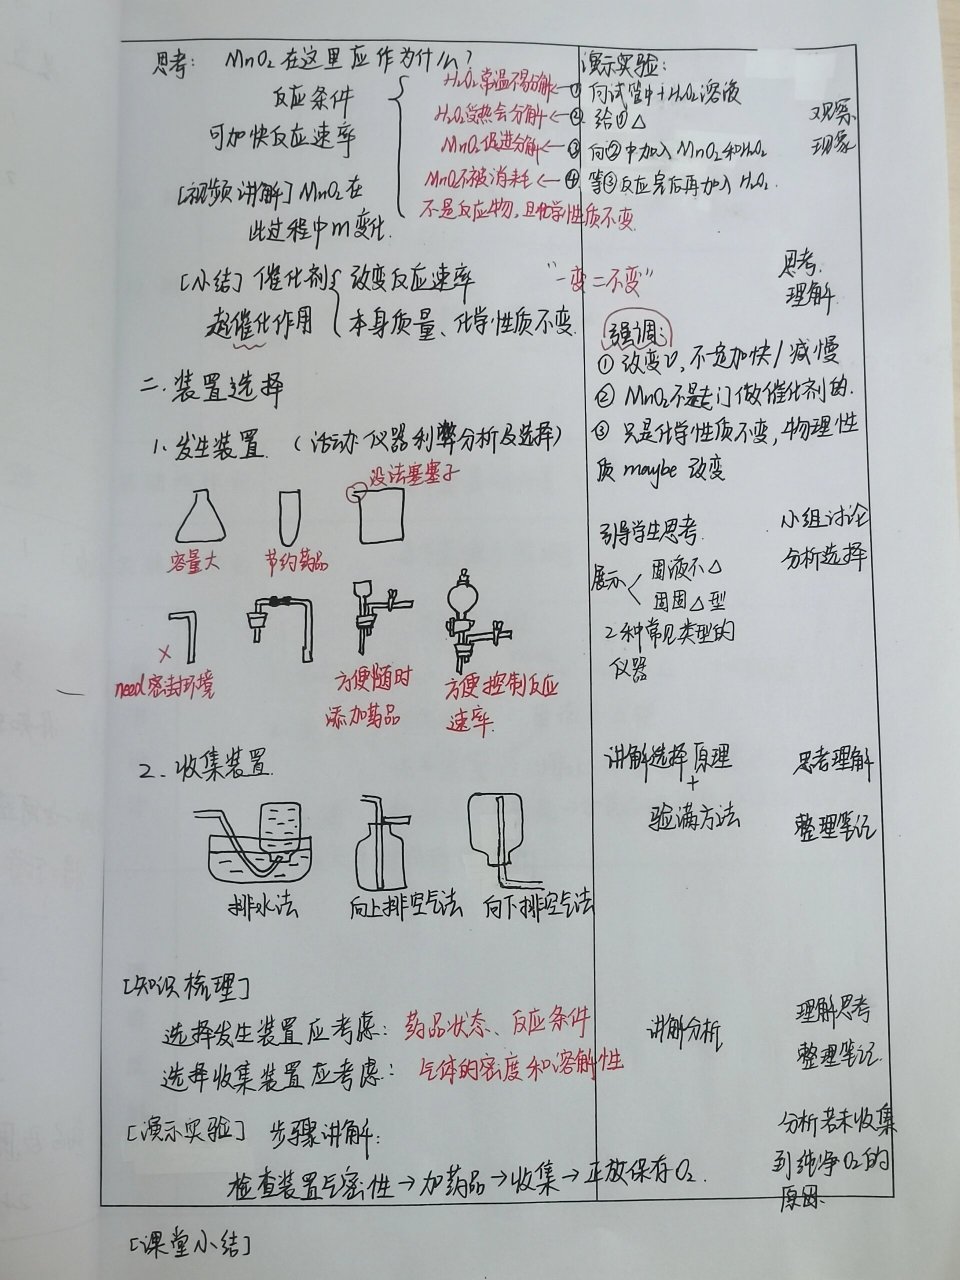 思考: MnO₂在这里应作为什么?
反应条件
可加快反应速率
[视频讲解] MnO₂在
此过程中m变化.
H₂O₂常温不易分解←①向试管中+H₂O₂溶液
H₂O₂受热会分解←②给①△
MnO₂促进分解←③向②中加入MnO₂和H₂O₂
MnO₂不被消耗←④等③反应完后再加入H₂O₂.
不是反应物,且化学性质不变.
演示实验:
观察
现象
[小结] 催化剂 改变反应速率 "一变二不变"
起催化作用 本身质量、化学性质不变.
思考.
理解.
强调:
① 改变v,不一定加快/减慢
② MnO₂不是专门做催化剂的.
③ 只是化学性质不变,物理性
质maybe改变
二.装置选择
1.发生装置.(活动:仪器利弊分析及选择)
没法塞塞子
容量大 节约药品
need密封环境
方便随时
添加药品
方便控制反应
速率.
引导学生思考.
展示 固液不△
固固△型
2种常见类型的
仪器
小组讨论
分析选择
2.收集装置.
排水法 向上排空气法 向下排空气法
讲解选择原理
+
验满方法
思考理解
整理笔记
[知识梳理]
选择发生装置应考虑:药品状态、反应条件
选择收集装置应考虑:气体的密度和溶解性
讲解分析
理解思考
整理笔记.
[演示实验] 步骤讲解:
检查装置气密性→加药品→收集→正放保存O₂.
分析若未收集
到纯净O₂的
原因.
[课堂小结]